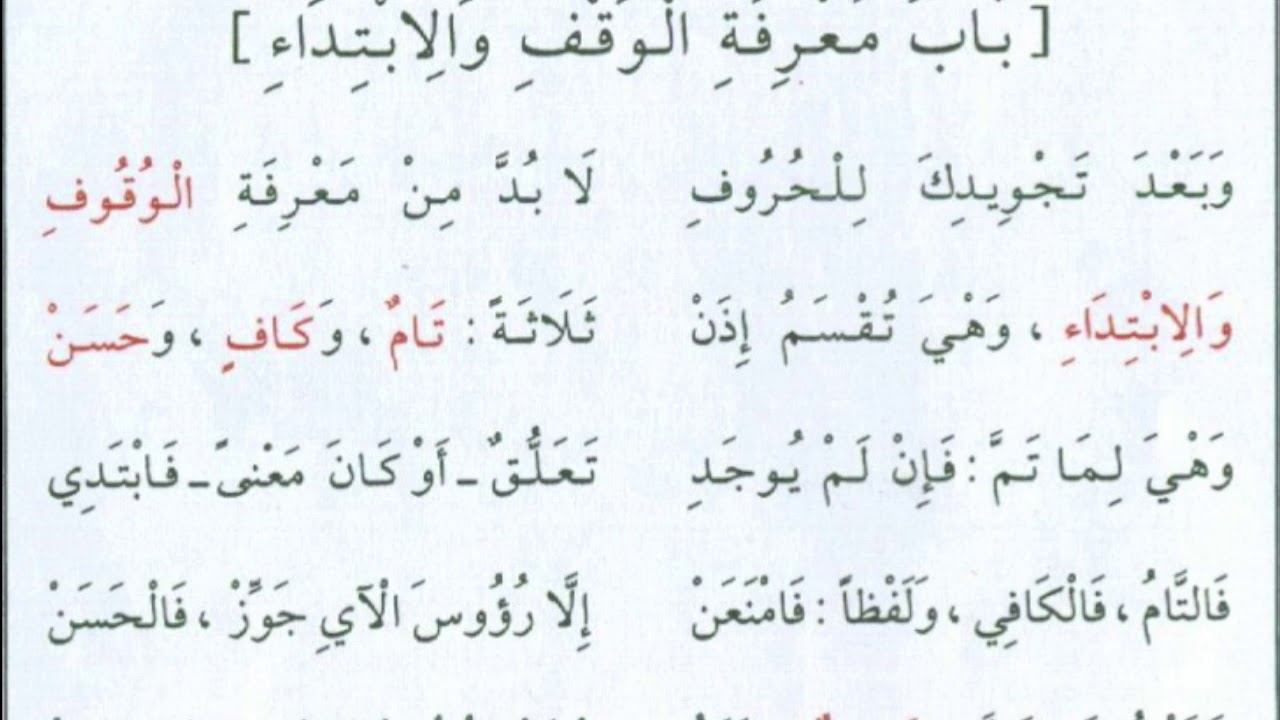 [ بَابُ مَعْرِفَةِ الْوَقْفِ وَالِابْتِدَاءِ ]
وَبَعْدَ تَجْوِيدِكَ لِلْحُرُوفِ لَا بُدَّ مِنْ مَعْرِفَةِ الْوُقُوفِ
وَالِابْتِدَاءِ ، وَهْيَ تُقْسَمُ إِذَنْ ثَلَاثَةً : تَامٌ ، وَكَافٍ ، وَحَسَنْ
وَهْيَ لِمَا تَمَّ : فَإِنْ لَمْ يُوجَدِ تَعَلُّقٌ - أَوْ كَانَ مَعْنىً - فَابْتَدِي
فَالتَّامُ ، فَالْكَافِي ، وَلَفْظاً : فَامْنَعَنْ إِلَّا رُؤُوسَ الْآيِ جَوِّزْ ، فَالْحَسَنْ